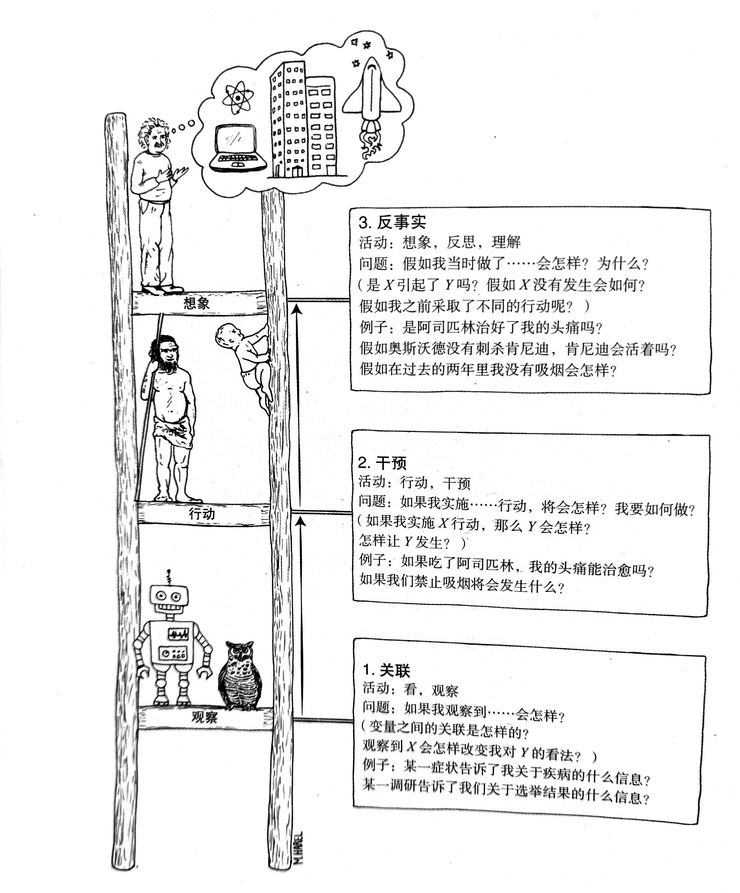 想象
3. 反事实
活动：想象，反思，理解
问题：假如我当时做了……会怎样？为什么？
（是 X 引起了 Y 吗？假如 X 没有发生会如何？
假如我之前采取了不同的行动呢？）
例子：是阿司匹林治好了我的头痛吗？
假如奥斯沃德没有刺杀肯尼迪，肯尼迪会活着吗？
假如在过去的两年里我没有吸烟会怎样？
行动
2. 干预
活动：行动，干预
问题：如果我实施……行动，将会怎样？我要如何做？
（如果我实施 X 行动，那么 Y 会怎样？
怎样让 Y 发生？）
例子：如果吃了阿司匹林，我的头痛能治愈吗？
如果我们禁止吸烟将会发生什么？
观察
1. 关联
活动：看，观察
问题：如果我观察到……会怎样？
（变量之间的关联是怎样的？
观察到 X 会怎样改变我对 Y 的看法？）
例子：某一症状告诉了我关于疾病的什么信息？
某一调研告诉了我们关于选举结果的什么信息？
M. HAREL